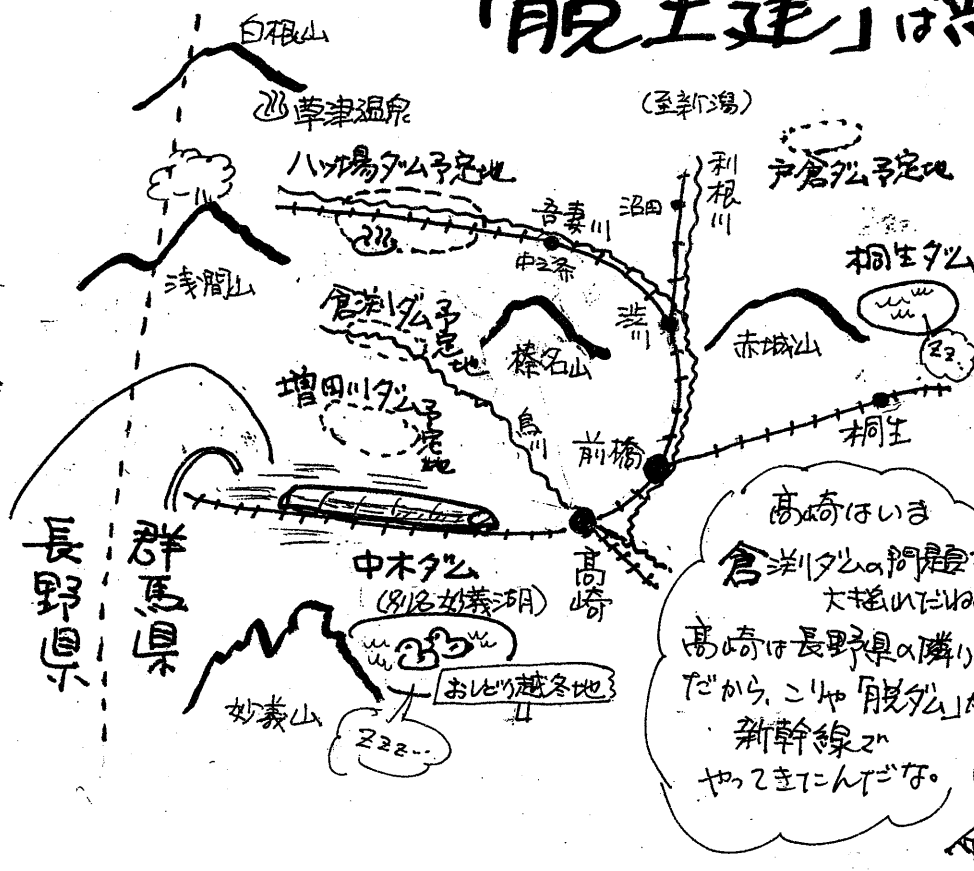 「脱土建」は
白根山
草津温泉
(至新潟)
八ッ場ダム予定地
利根川
戸倉ダム予定地
吾妻川
沼田
中之条
桐生ダム
浅間山
倉渕ダム予定地
榛名山
渋川
赤城山
zz
増田川ダム予定地
烏川
前橋
桐生
長野県
群馬県
中木ダム
(別名妙義湖)
高崎
おしどり越冬地
妙義山
zzz…
高崎はいま
倉渕ダムの問題で
大揺れだね
高崎は長野県の隣り
だから、こりゃ「脱ダム」が
新幹線で
やってきたんだな。